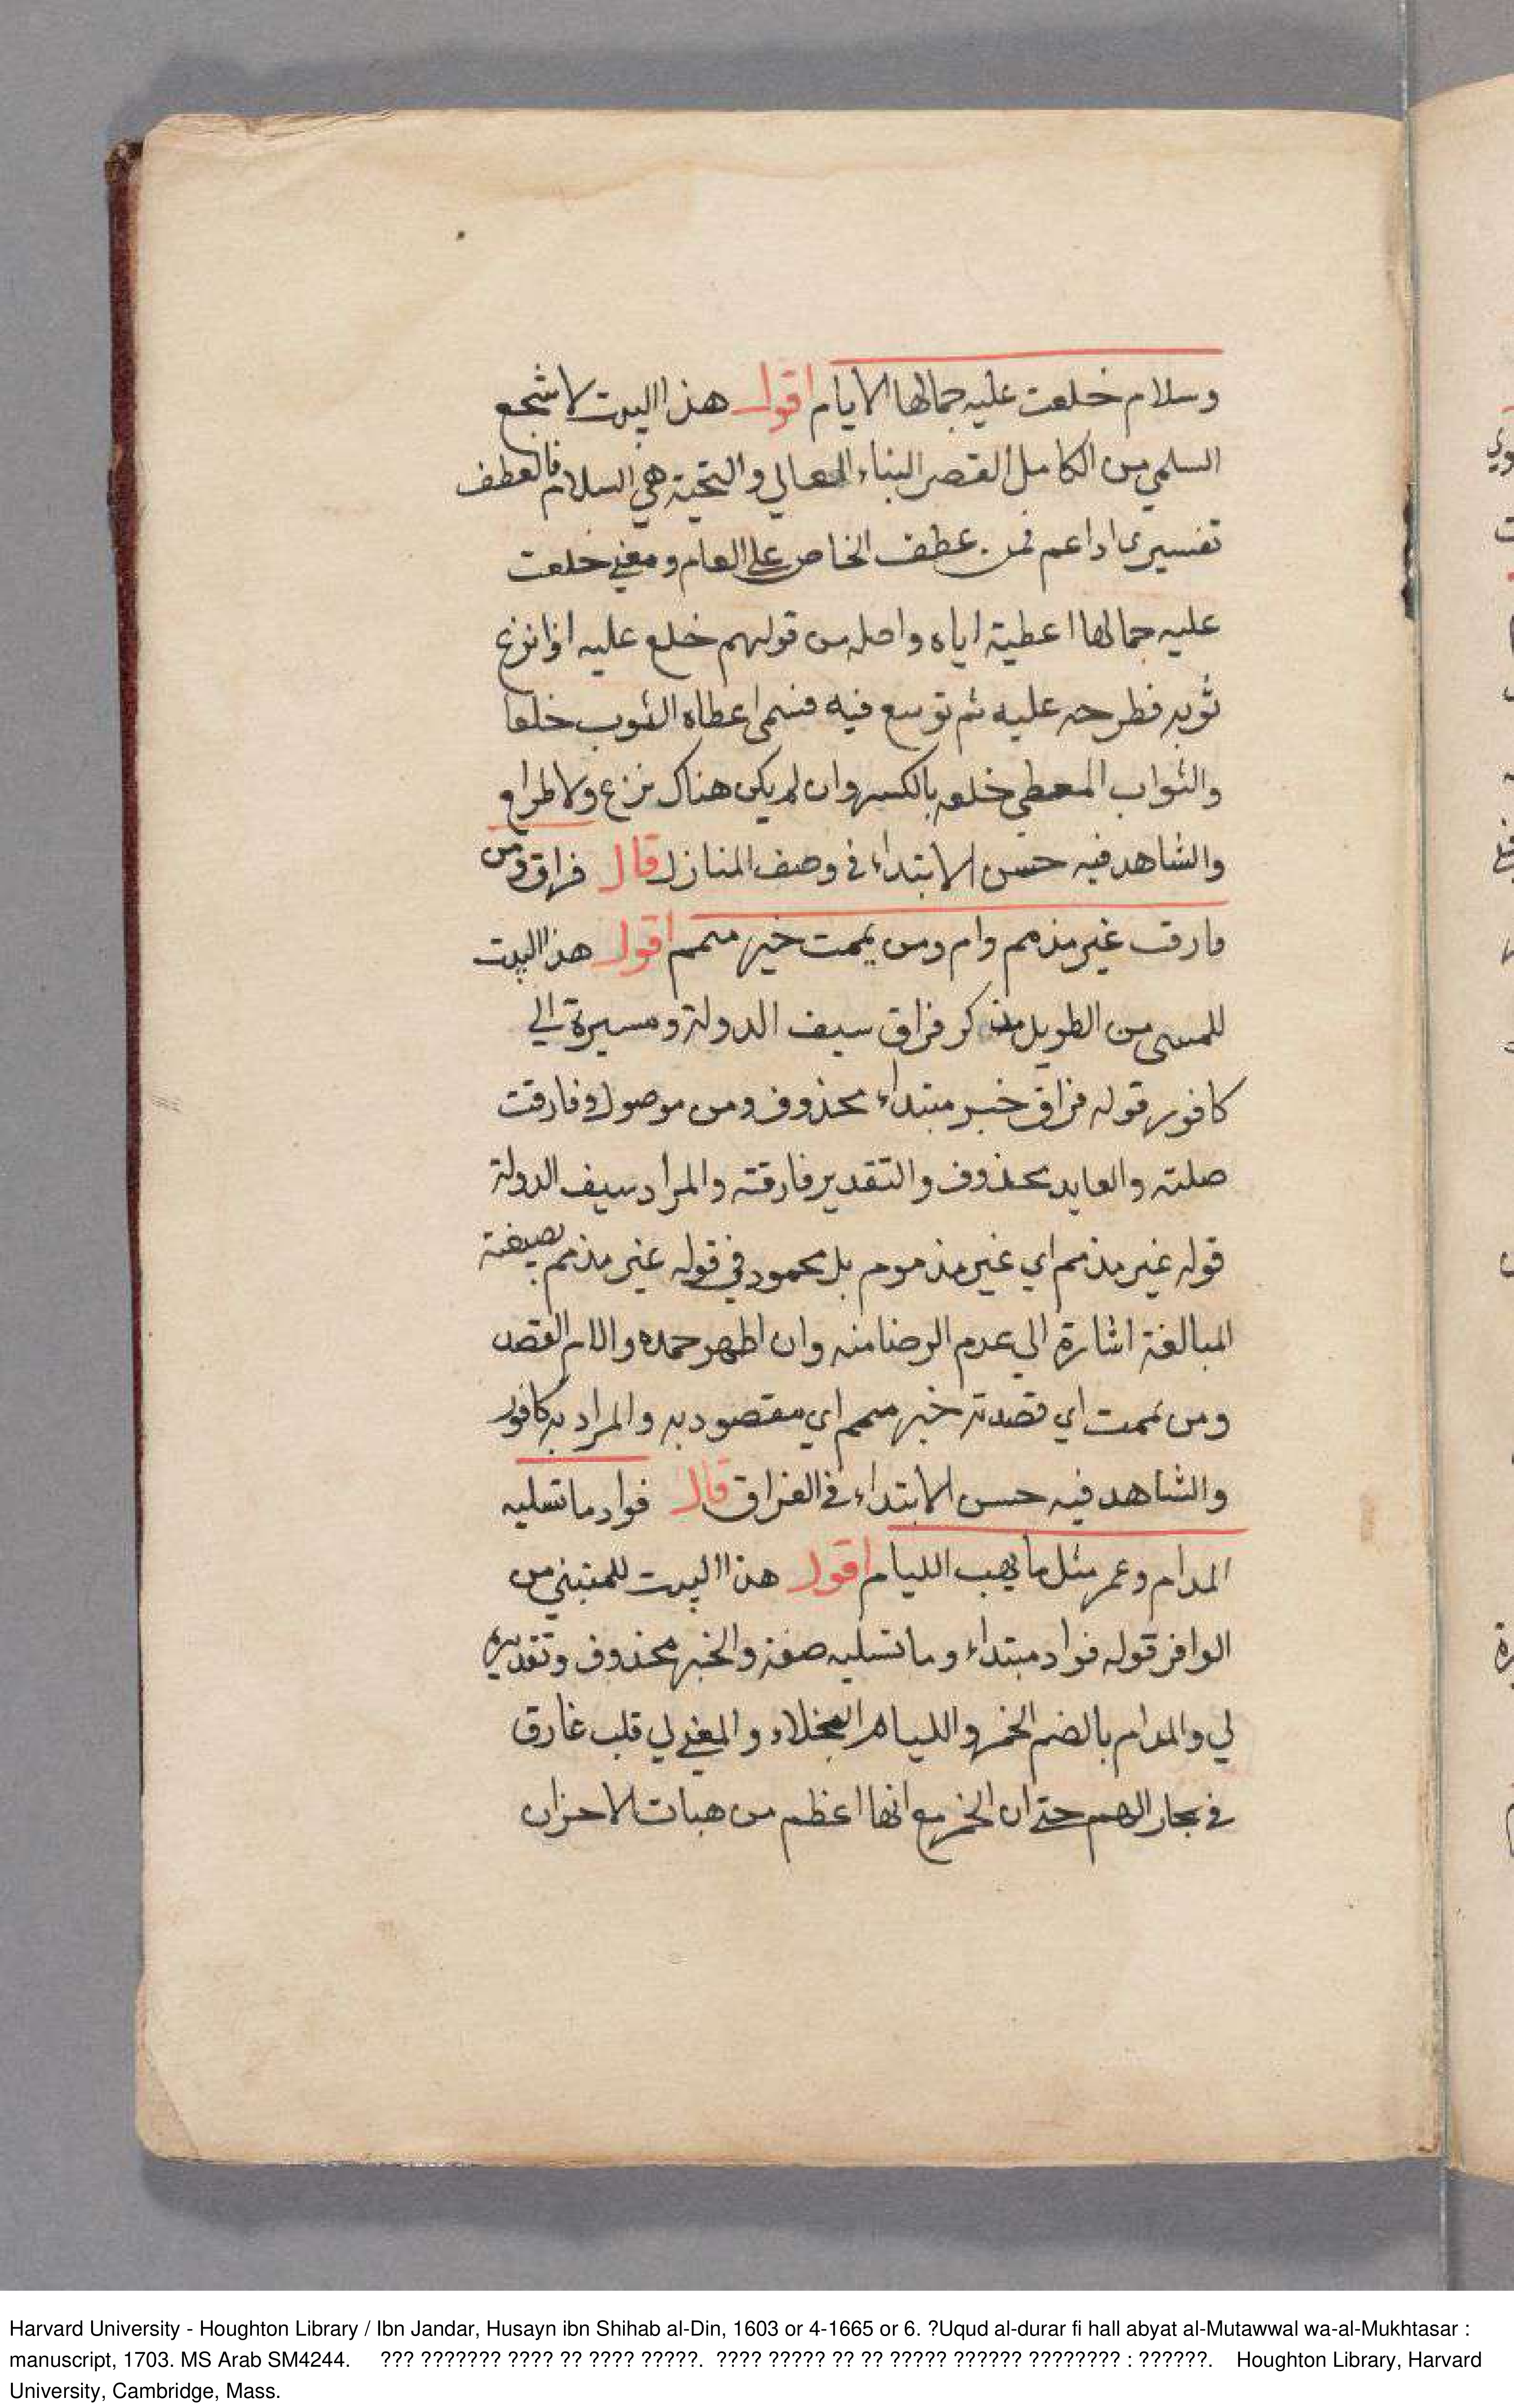 وسلام خلعت عليه جمالها الايام اقول هذا البيت لاشجع
السلمي من الكامل القصر البناء العالي والتحية هي السلام فالعطف
تفسيرى او اعم فمن عطف الخاص على العام ومعنى خلعت
عليه جمالها اعطية اياه واصله من قولهم خلع عليه اذا نزع
ثوبه فطرحه عليه ثم توسع فيه فسمى اعطاه الثوب خلعا
والثواب المعطي خلعه بالكسر وان لم يكن هناك نزع ولا طرح
والشاهد فيه حسن الابتداء في وصف المنازل قال فراق ومن
فارقت غير مذمم وام ومن يممت خير ميمم اقول هذا البيت
للمتنبى من الطويل يذكر فراق سيف الدولة ومسيرة الي
كافور قوله فراق خبر مبتداء محذوف ومن موصول وفارقت
صلته والعايد محذوف والتقدير فارقته والمراد سيف الدولة
قوله غير مذمم اي غير مذموم بل محمود في قوله غير مذمم بصيغة
المبالغة اشارة الى عدم الرضا منه وان اظهر حمده والام القصد
ومن يممت اي قصدته خير ميمم اي مقصود به والمراد به كافور
والشاهد فيه حسن الابتداء في الفراق قال فواد ما تسليه
المدام وعمر مثل ما يهب الليام اقول هذا البيت للمتنبي من
الوافر قوله فواد مبتداء وما تسليه صفة والخبر محذوف وتقديره
لي والمدام بالضم الخمر والليام البخلاء والمعنى لي قلب غارق
في بحار الهم حتى ان الخمر مع انها اعظم من هبات الاحزان
Harvard University - Houghton Library / Ibn Jandar, Husayn ibn Shihab al-Din, 1603 or 4-1665 or 6. ?Uqud al-durar fi hall abyat al-Mutawwal wa-al-Mukhtasar :
manuscript, 1703. MS Arab SM4244. ??? ??????? ???? ?? ???? ?????. ???? ????? ?? ?? ????? ?????? ???????? : ??????. Houghton Library, Harvard
University, Cambridge, Mass.